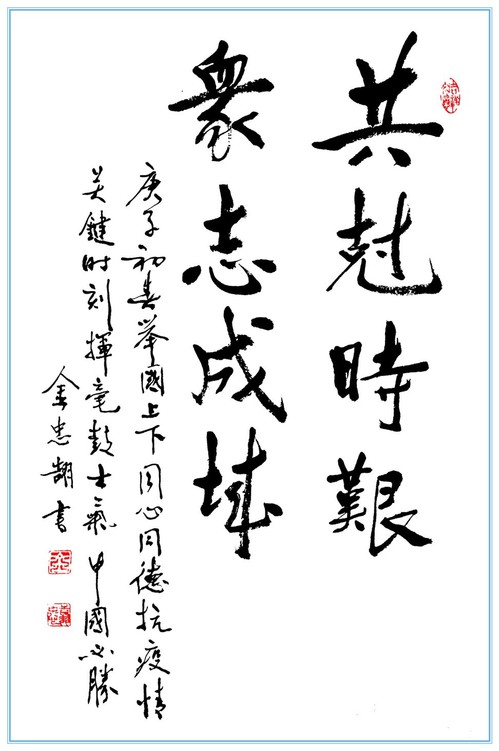 共尅時艱
衆志成城
庚子初春举國上下同心同德抗疫情
关鍵时刻揮毫鼓士氣中國必勝
金忠翹书